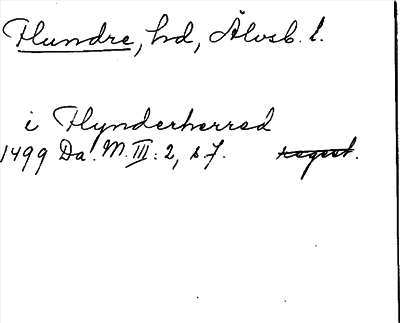 Flundre, hd, Älvsb. l.
i Flynderherred
1499 Da. M. III: 2, s 7. regest.